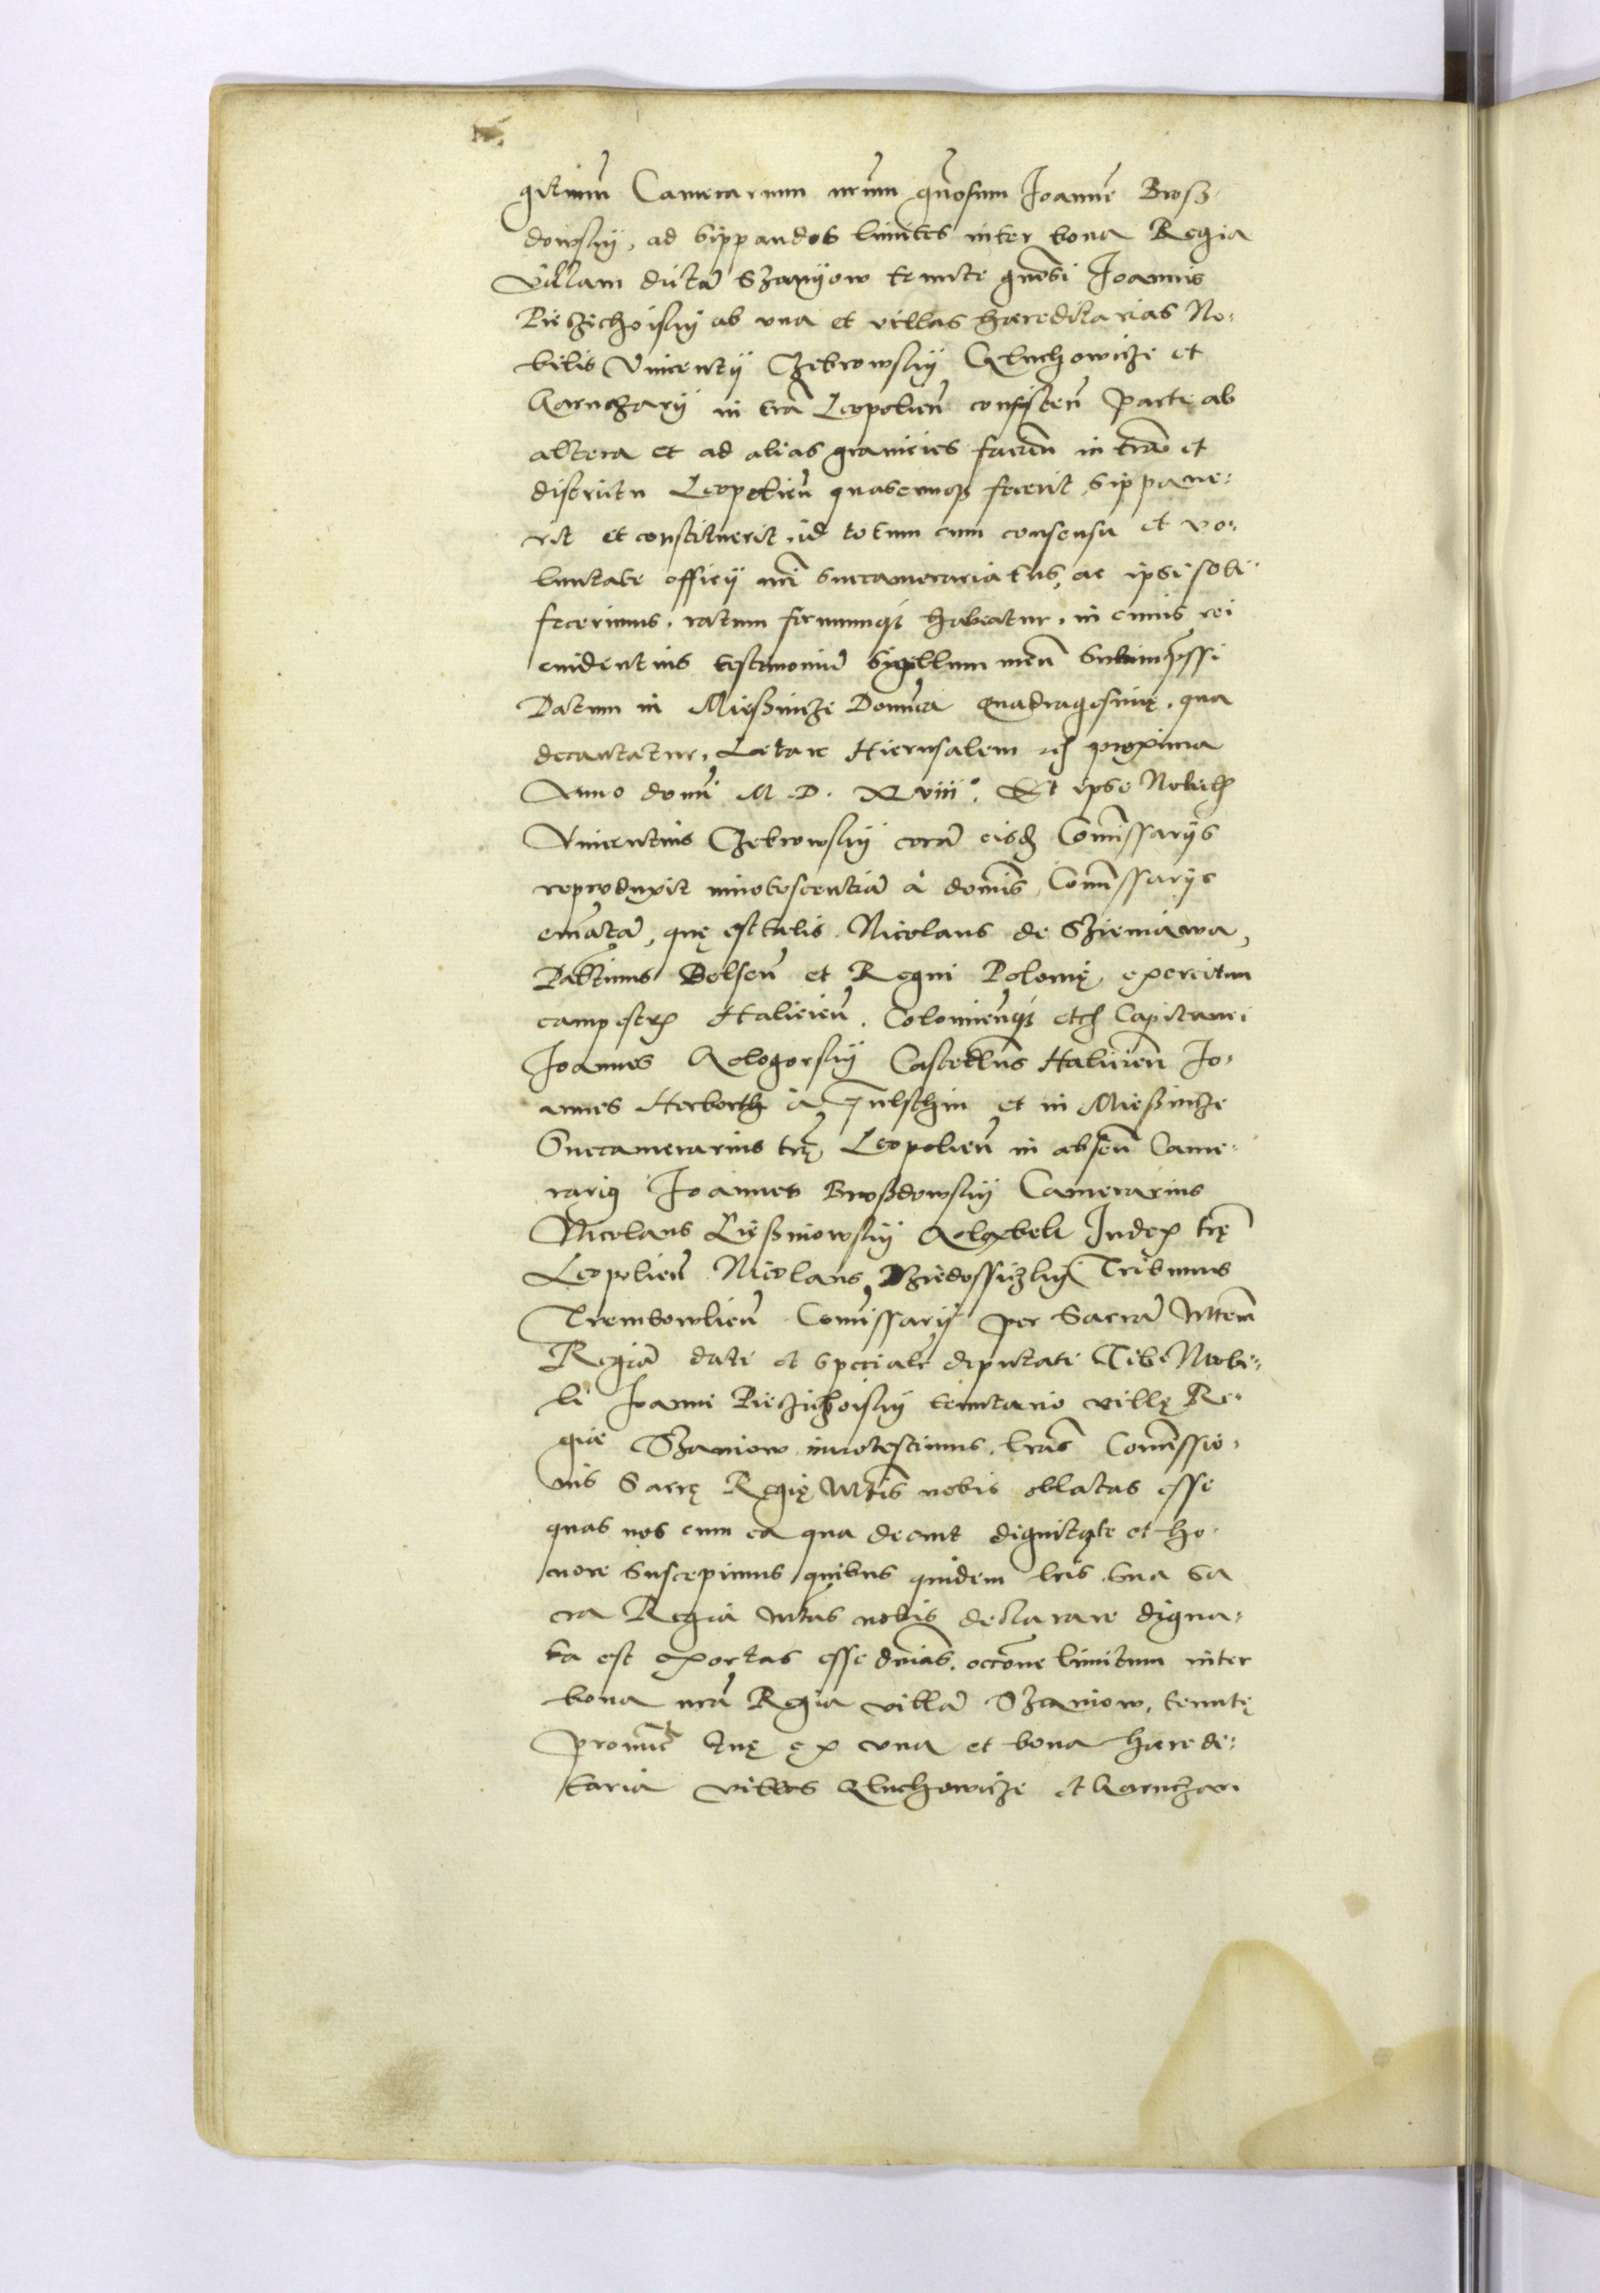 gitimum Camerarium nrum gnosum Joanne Brosz
dowsky, ad sippandos limites inter bona Regia
Villam dicta Szanyow tenute gnosi Joannis
Pieczichoisky ab vna et villas haereditarias No-
bilis Vincenty Czebrowsky Gluchowicze et
Karnczary in tra Leopolien consisten parte ab
altera et ad alias granicies facien in tra et
districtu Leopolien quascunq; fecerit sippaue-
rit et constituerit, id totum cum consensu et vo-
luntate officy mei succamerariatus, ac ipsi soli
fecerimus, ratum firmumq; habeatur, in cuius rei
euidentius testimoniu Sigillum meu subimpssi
Datum in Mieszincze Domca quadragesimę, qua
decantatur, Letare Hierusalem proxima
Anno domi M. D. XLviii°. Et ipse Nobilis
Vincentius Czebrowsky cora eisd Comissarys
reproduxit innotescentia à domis Comissarys
emata, quę est talis Nicolaus de Szieniawa,
Paltinus Belsen et Regni Polonię, exercituu
campestr Halicien. Colomienq; etc Capitanei
Joannes Kologorsky Castellnus Halicien Jo-
annes Herborth à Fulschin et in Mieszincze
Succamerarius trę Leopolien in absen Came-
rarig Joannes Broszdowsky Camerarius
Nicolaus Lieszniowsky Judex trę
Leopolien Nicolaus Tribunus
Trembowlien Comissary per Sacra Mttem
Regia dati et speciale deputati Tibi Nobi-
li Joanni Pieczichoisky tenutario villę Re-
gie Szaniow innotescimus, lras Comissio-
nis Sacrę Regię Mtis nobis oblatas esse
quas nos cum ea qua decuit dignitate et ho-
nore suscepimus quibus quidem lris sua Sa
cra Regia Mtas nobis declarare digna-
ta est exortas esse drias, occone limitum inter
bona nra Regia villa Szaniow, tenutę
pronuc tuę ex vna et bona haeredi-
taria villas Gluchowicze et Karnczari